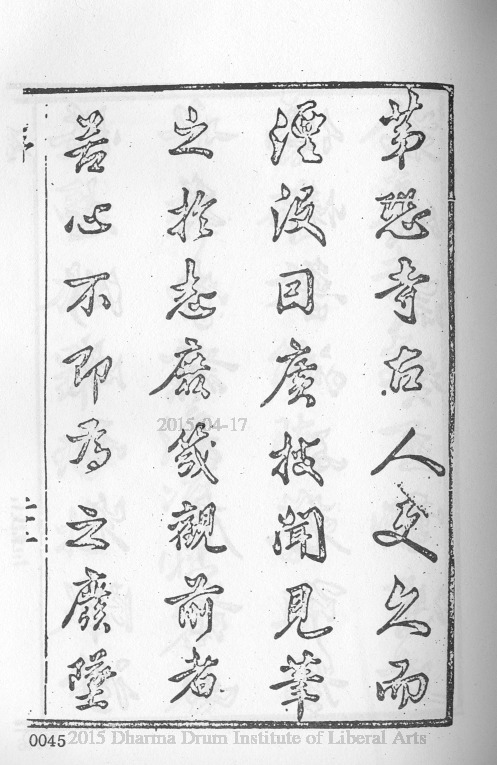 第恐寺古人更久而
湮沒因廣搜聞見筆
之於志庶幾觀前者
苦心不即為之廢墜
2015-04-17
0045
2015 Dharma Drum Institute of Liberal Arts